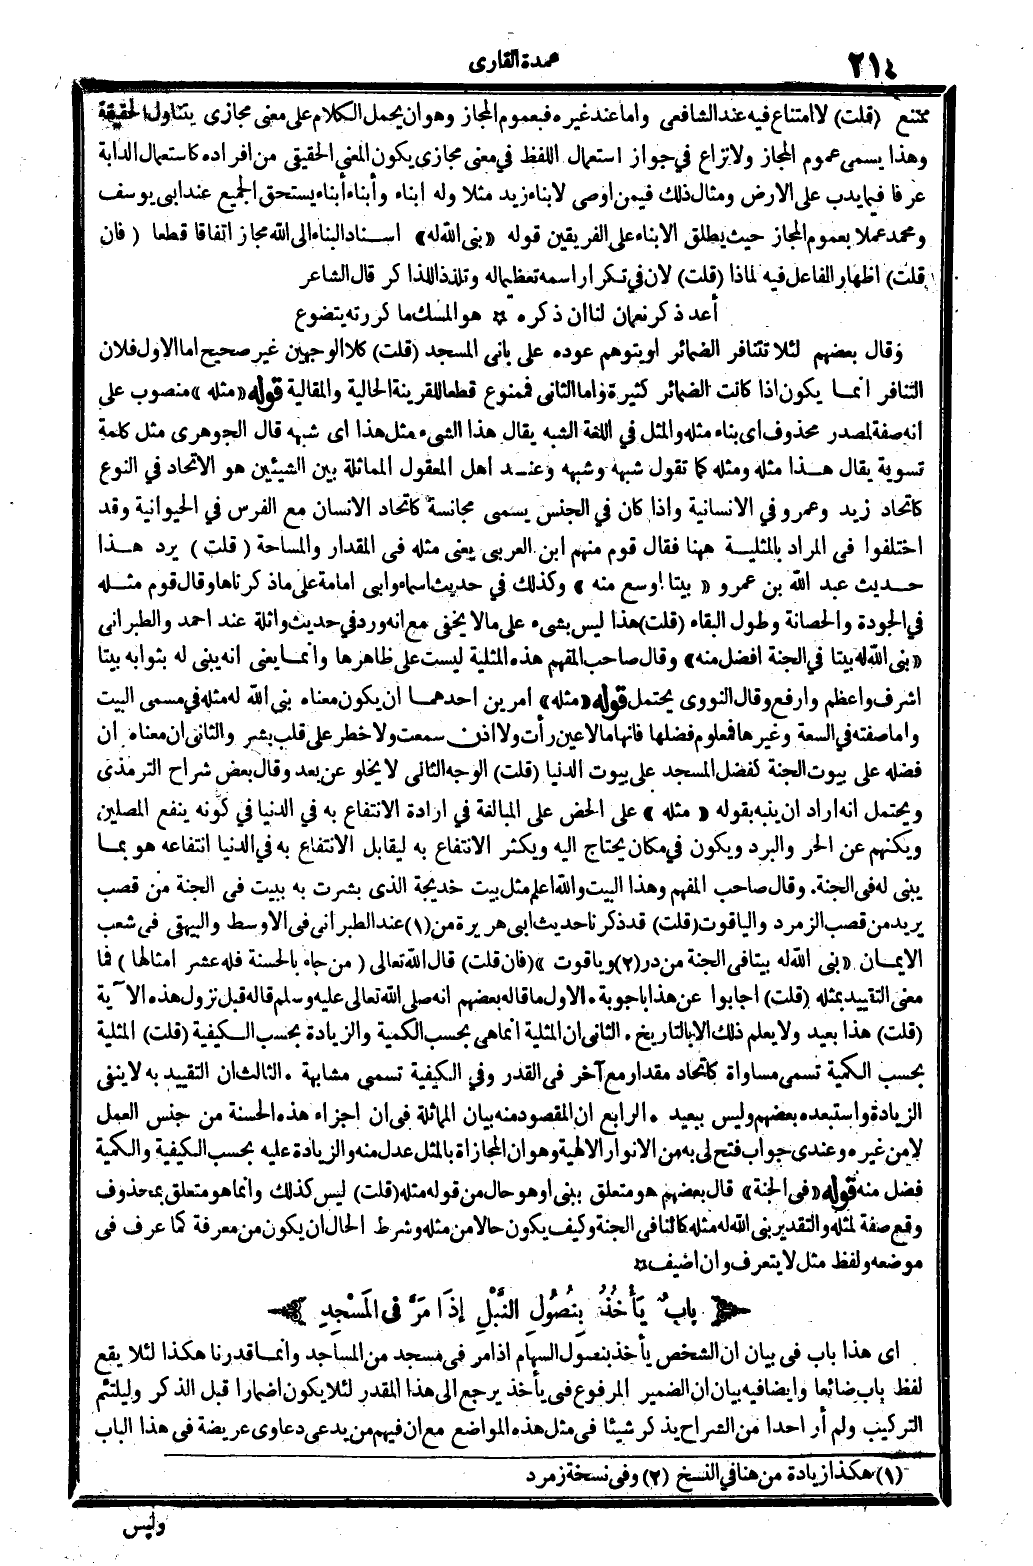 ٢١٤
عمدة القارى
ممتنع (قلت) لا امتناع فيه عند الشافعى واما عند غيره فبعموم المجاز وهو ان يحمل الكلام على معنى مجازى يتناول الحقيقة
وهذا يسمى عموم المجاز ولا نزاع في جواز استعمال اللفظ في معنى مجازى يكون المعنى الحقيقى من افراده كاستعمال الدابة
عرفا فيما يدب على الارض ومثال ذلك فيمن اوصى لابناء زيد مثلا وله ابناء وأبناء أبناء يستحق الجميع عند ابى يوسف
ومحمد عملا بعموم المجاز حيث يطلق الابناء على الفريقين قوله «بنى الله له» اسناد البناء الى الله مجاز اتفاقا قطعا (فان
قلت) اظهار الفاعل فيه لماذا (قلت) لان في تكرار اسمه تعظيما له وتلذذا للذاكر قال الشاعر
أعد ذكر نعمان لنا ان ذكره ¤ هو المسك ما كررته يتضوع
وقال بعضهم لئلا تتنافر الضمائر او يتوهم عوده على بانى المسجد (قلت) كلا الوجهين غير صحيح اما الاول فلان
التنافر انما يكون اذا كانت الضمائر كثيرة واما الثانى فممنوع قطعا للقرينة الحالية والمقالية قوله «مثله» منصوب على
انه صفة لمصدر محذوف اى بناء مثله والمثل في اللغة الشبه يقال هذا الشىء مثل هذا اى شبهه قال الجوهرى مثل كلمة
تسوية يقال هذا مثله ومثله كما تقول شبهه وشبهه وعند اهل المعقول المماثلة بين الشيئين هو الاتحاد في النوع
كاتحاد زيد وعمرو في الانسانية واذا كان في الجنس يسمى مجانسة كاتحاد الانسان مع الفرس في الحيوانية وقد
اختلفوا فى المراد بالمثلية ههنا فقال قوم منهم ابن العربى يعنى مثله فى المقدار والمساحة (قلت) يرد هذا
حديث عبد الله بن عمرو «بيتا اوسع منه» وكذلك في حديث اسماء وابى امامة على ما ذكرناها وقال قوم مثله
في الجودة والحصانة وطول البقاء (قلت) هذا ليس بشىء على مالا يخفى مع انه ورد في حديث واثلة عند احمد والطبرانى
«بنى الله له بيتا في الجنة افضل منه» وقال صاحب المفهم هذه المثلية ليست على ظاهرها وانما يعنى انه يبنى له بثوابه بيتا
اشرف واعظم وارفع وقال النووى يحتمل قوله «مثله» امرين احدهما ان يكون معناه بنى الله له مثله في مسمى البيت
واما صفته في السعة وغيرها فمعلوم فضلها فانها مالا عين رأت ولا اذن سمعت ولا خطر على قلب بشر والثانى ان معناه ان
فضله على بيوت الجنة كفضل المسجد على بيوت الدنيا (قلت) الوجه الثانى لا يخلو عن بعد وقال بعض شراح الترمذى
ويحتمل انه اراد ان ينبه بقوله «مثله» على الحض على المبالغة في ارادة الانتفاع به في الدنيا في كونه ينفع المصلين
ويكنهم عن الحر والبرد ويكون في مكان يحتاج اليه ويكثر الانتفاع به ليقابل الانتفاع به في الدنيا انتفاعه هو بما
يبنى له فى الجنة. وقال صاحب المفهم وهذا البيت والله اعلم مثل بيت خديجة الذى بشرت به ببيت فى الجنة من قصب
يريد من قصب الزمرد والياقوت (قلت) قد ذكرنا حديث ابى هريرة من (١) عند الطبرانى فى الاوسط والبيهقى فى شعب
الايمان «بنى الله له بيتا فى الجنة من در (٢) وياقوت» (فان قلت) قال الله تعالى (من جاء بالحسنة فله عشر امثالها) فما
معنى التقييد بمثله (قلت) اجابوا عن هذا باجوبة. الاول ما قاله بعضهم انه صلى الله تعالى عليه وسلم قاله قبل نزول هذه الآية
(قلت) هذا بعيد ولا يعلم ذلك الا بالتاريخ. الثانى ان المثلية انما هى بحسب الكمية والزيادة بحسب الكيفية (قلت) المثلية
بحسب الكمية تسمى مساواة كاتحاد مقدار مع آخر فى القدر وفي الكيفية تسمى مشابهة. الثالث ان التقييد به لا ينفى
الزيادة واستبعده بعضهم وليس ببعيد. الرابع ان المقصود منه بيان المماثلة فى ان اجزاء هذه الحسنة من جنس العمل
لا من غيره وعندى جواب فتح لى به من الانوار الالهية وهو ان المجازاة بالمثل عدل منه والزيادة عليه بحسب الكيفية والكمية
فضل منه قوله «فى الجنة» قال بعضهم هو متعلق ببنى او هو حال من قوله مثله (قلت) ليس كذلك وانما هو متعلق بمحذوف
وقع صفة لمثله والتقدير بنى الله له مثله كائنا فى الجنة وكيف يكون حالا من مثله وشرط الحال ان يكون من معرفة كما عرف فى
موضعه ولفظ مثل لا يتعرف وان اضيف ¤
بابٌ يَأْخُذُ بِنُصُولِ النَّبْلِ إذَا مَرَّ فى المَسْجِدِ
اى هذا باب فى بيان ان الشخص يأخذ بنصول السهام اذا مر فى مسجد من المساجد وانما قدرنا هكذا لئلا يقع
لفظ باب ضائعا وايضا فيه بيان ان الضمير المرفوع فى يأخذ يرجع الى هذا المقدر لئلا يكون اضمارا قبل الذكر وليلتئم
التركيب ولم أر احدا من الشراح يذكر شيئا فى مثل هذه المواضع مع ان فيهم من يدعى دعاوى عريضة فى هذا الباب
(١) هكذا زيادة من هنا في النسخ (٢) وفى نسخة زمرد
وليس